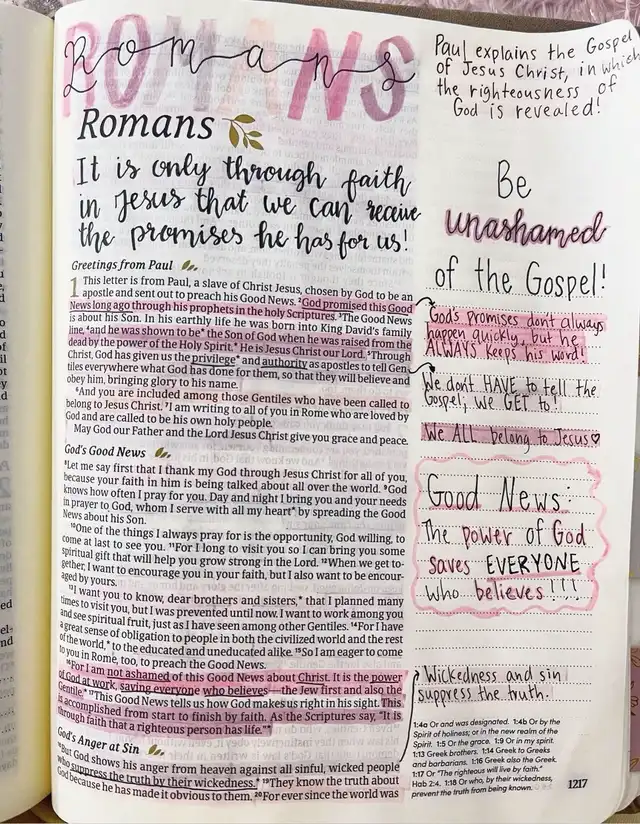 ROMANS
Romans
Romans
It is only through faith
in Jesus that we can receive
the promises he has for us!
Greetings from Paul
1 This letter is from Paul, a slave of Christ Jesus, chosen by God to be an
apostle and sent out to preach his Good News. 2God promised this Good
News long ago through his prophets in the holy Scriptures. 3The Good News
is about his Son. In his earthly life he was born into King David's family
line, 4and he was shown to be* the Son of God when he was raised from the
dead by the power of the Holy Spirit.* He is Jesus Christ our Lord. 5Through
Christ, God has given us the privilege* and authority as apostles to tell Gen-
tiles everywhere what God has done for them, so that they will believe and
obey him, bringing glory to his name.
6And you are included among those Gentiles who have been called to
belong to Jesus Christ. 7I am writing to all of you in Rome who are loved by
God and are called to be his own holy people.
May God our Father and the Lord Jesus Christ give you grace and peace.
God's Good News
8Let me say first that I thank my God through Jesus Christ for all of you,
because your faith in him is being talked about all over the world. 9God
knows how often I pray for you. Day and night I bring you and your needs
in prayer to God, whom I serve with all my heart* by spreading the Good
News about his Son.
10One of the things I always pray for is the opportunity, God willing, to
come at last to see you. 11For I long to visit you so I can bring you some
spiritual gift that will help you grow strong in the Lord. 12When we get to-
gether, I want to encourage you in your faith, but I also want to be encour-
aged by yours.
13I want you to know, dear brothers and sisters,* that I planned many
times to visit you, but I was prevented until now. I want to work among you
and see spiritual fruit, just as I have seen among other Gentiles. 14For I have
a great sense of obligation to people in both the civilized world and the rest
of the world,* to the educated and uneducated alike. 15So I am eager to come
to you in Rome, too, to preach the Good News.
16For I am not ashamed of this Good News about Christ. It is the power
of God at work, saving everyone who believes—the Jew first and also the
Gentile.* 17This Good News tells us how God makes us right in his sight. This
is accomplished from start to finish by faith. As the Scriptures say, "It is
through faith that a righteous person has life."*
God's Anger at Sin
18But God shows his anger from heaven against all sinful, wicked people
who suppress the truth by their wickedness.* 19They know the truth about
God because he has made it obvious to them. 20For ever since the world was
Paul explains the Gospel
of Jesus Christ, in which
the righteousness of
God is revealed!
Be
unashamed
of the Gospel!
God's promises don't always
happen quickly, but he
ALWAYS keeps his word!
We don't HAVE to tell the
Gospel, we GET to!
We ALL belong to Jesus♡
Good News:
The power of God
saves EVERYONE
who believes!!!
Wickedness and sin
suppress the truth.
1:4a Or and was designated. 1:4b Or by the
Spirit of holiness; or in the new realm of the
Spirit. 1:5 Or the grace. 1:9 Or in my spirit.
1:13 Greek brothers. 1:14 Greek to Greeks
and barbarians. 1:16 Greek also the Greek.
1:17 Or "The righteous will live by faith."
Hab 2:4. 1:18 Or who, by their wickedness,
prevent the truth from being known.
1217